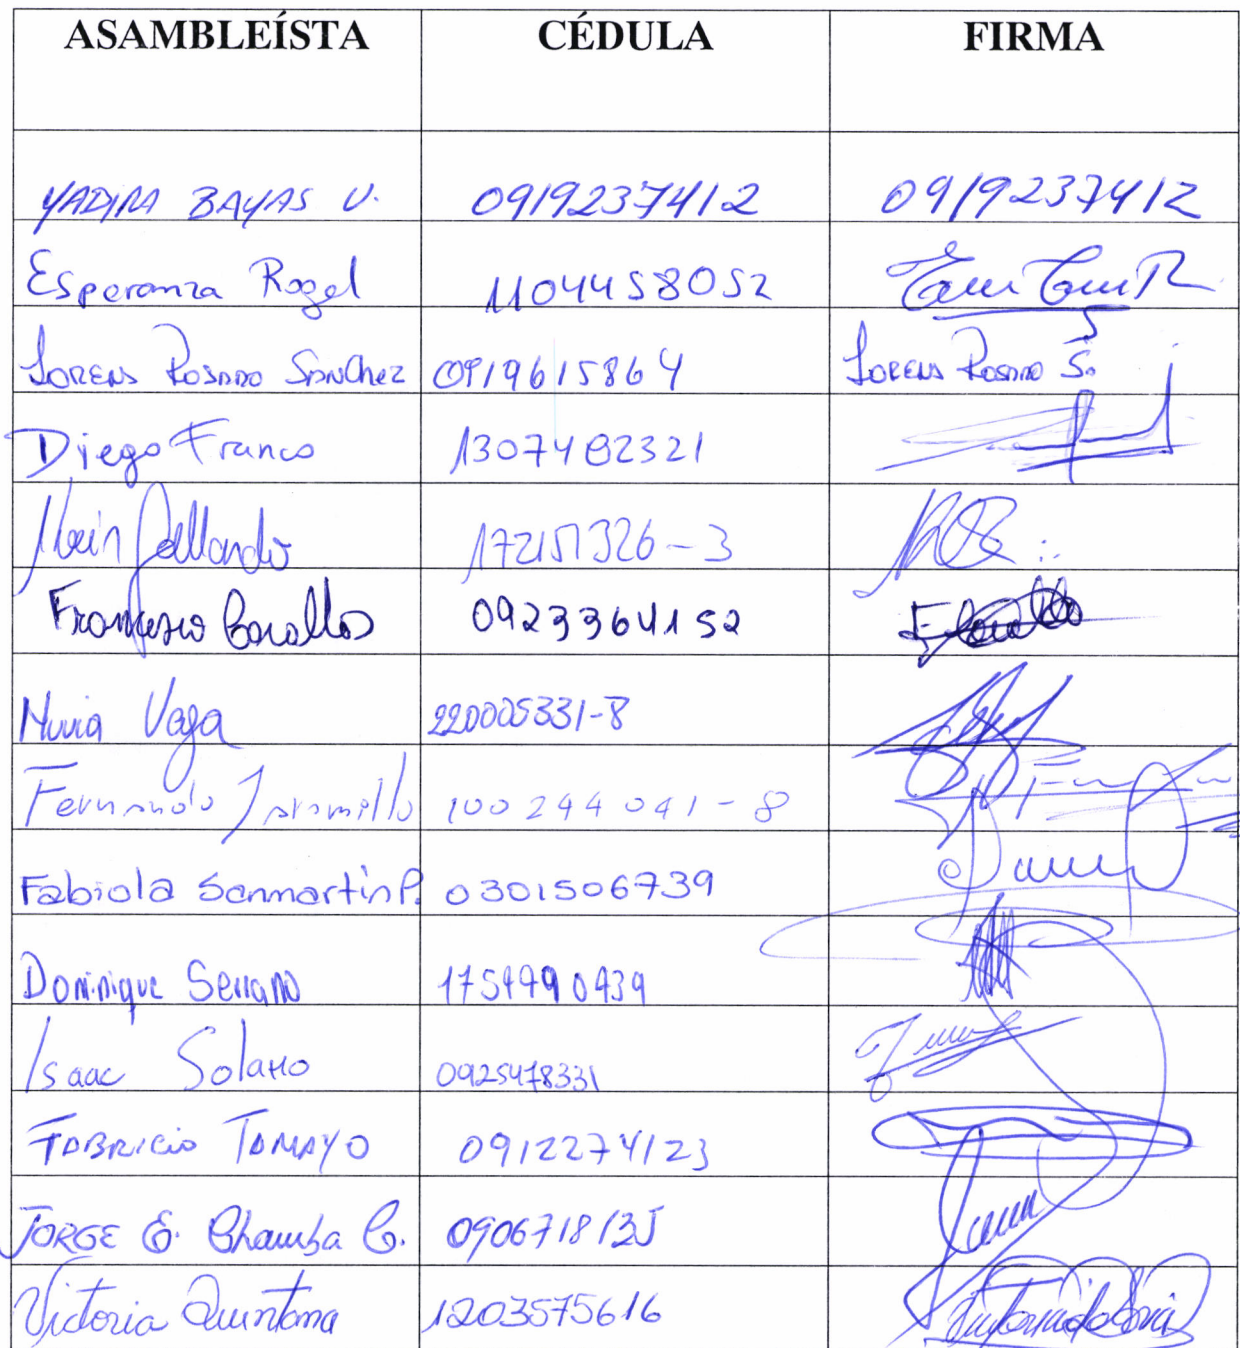 ASAMBLEÍSTA CÉDULA FIRMA
YADIRA BAYAS U. 0919237412 0919237412
Esperanza Rogel 1104458052
LORENA ROSADO SÁNCHEZ 0919615864 LORENA ROSADO S.
Diego Franco 1307482321
Gallardo 172151326-3
Francisco Cevallos 0923364152
Nuvia Vega 220005331-8
Fernando Jaramillo 100244041-8
Fabiola Sanmartin P. 0301506739
Dominique Serrano
Isaac Solano 0925478331
FABRICIO TAMAYO 0912274123
JORGE E. Chamba C. 0906718135
Victoria Quintana 1203575616